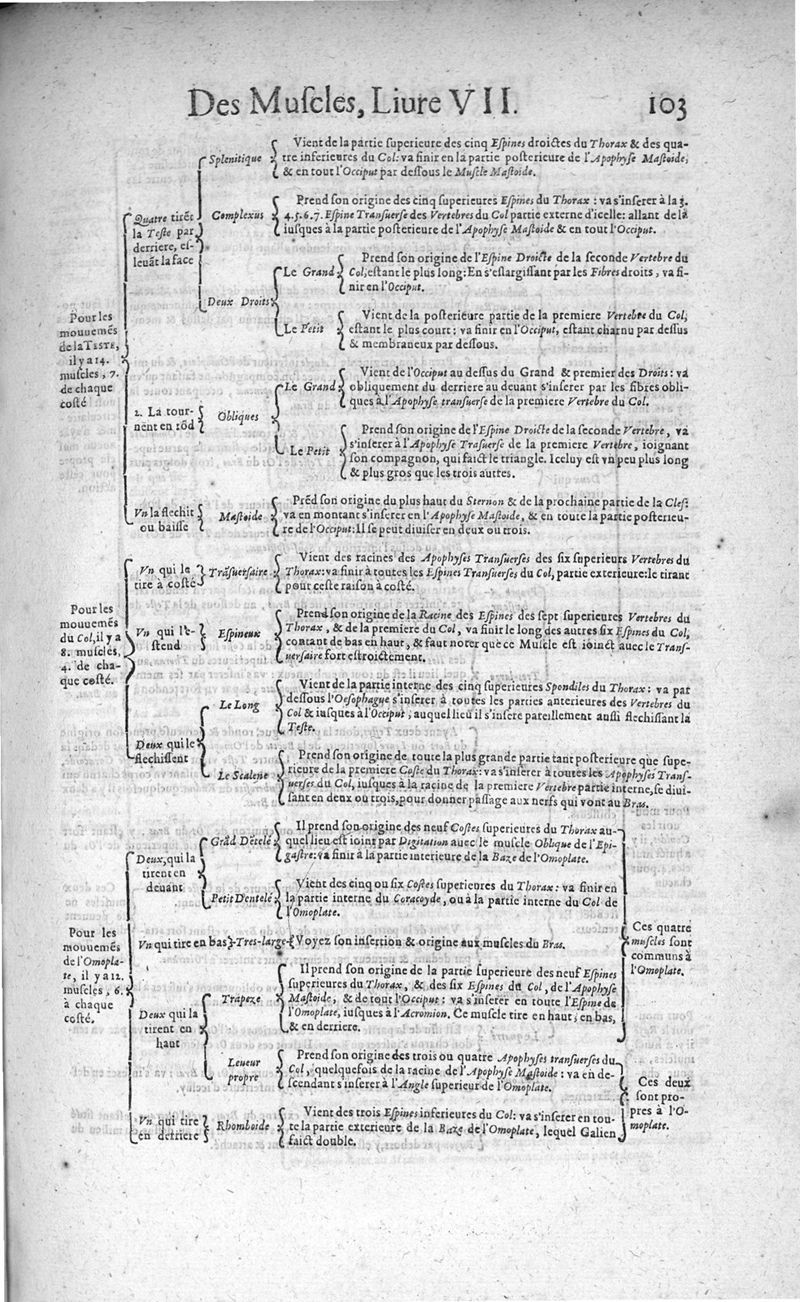 Des Muſcles, Liure VII. 103
Pour les
mouuemẽs
de la TESTE,
il y a 14.
muſcles, 7.
de chaque
coſté
Quatre tirẽt
la Teſte par
derriere, eſ-
leuãt la face
Splenitique
Vient de la partie ſuperieure des cinq Eſpines droictes du Thorax & des qua-
tre inferieures du Col: va finir en la partie poſterieure de l'Apophyſe Maſtoide,
& en tout l'Occiput par deſſous le Muſcle Maſtoide.
Complexus
Prend ſon origine des cinq ſuperieures Eſpines du Thorax : va s'inſerer à la 3.
4.5.6.7. Eſpine Tranſuerſe des Vertebres du Col partie externe d'icelle: allant de là
iuſques à la partie poſterieure de l'Apophyſe Maſtoide & en tout l'Occiput.
Deux Droits
Le Grand
Prend ſon origine de l'Eſpine Droicte de la ſeconde Vertebre du
Col, eſtant le plus long: En s'eſlargiſſant par les Fibres droits, va fi-
nir en l'Occiput.
Le Petit
Vient de la poſterieure partie de la premiere Vertebre du Col,
eſtant le plus court : va finir en l'Occiput, eſtant charnu par deſſus
& membraneux par deſſous.
2. La tour-
nent en rõd
Obliques
Le Grand
Vient de l'Occiput au deſſus du Grand & premier des Droits: va
obliquement du derriere au deuant s'inſerer par les fibres obli-
ques à l'Apophyſe tranſuerſe de la premiere Vertebre du Col.
Le Petit
Prend ſon origine de l'Eſpine Droicte de la ſeconde Vertebre, va
s'inſerer à l'Apophyſe Traſuerſe de la premiere Vertebre, ioignant
ſon compagnon, qui faict le triangle. Iceluy eſt vn peu plus long
& plus gros que les trois autres.
Vn la flechit
ou baiſſe
Maſtoide
Prẽd ſon origine du plus haut du Sternon & de la prochaine partie de la Clef:
va en montant s'inſerer en l'Apophyſe Maſtoide, & en toute la partie poſterieu-
re de l'Occiput: Il ſe peut diuiſer en deux ou trois.
Pour les
mouuemẽs
du Col, il y a
8. muſcles,
4. de cha-
que coſté.
Vn qui le
tire à coſté
Trãſuerſaire
Vient des racines des Apophyſes Tranſuerſes des ſix ſuperieurs Vertebres du
Thorax: va finir à toutes les Eſpines Tranſuerſes du Col, partie exterieure: le tirant
pour ceſte raiſon à coſté.
Vn qui l'e-
ſtend
Eſpineux
Prend ſon origine de la Racine des Eſpines des ſept ſuperieures Vertebres du
Thorax, & de la premiere du Col, va finir le long des autres ſix Eſpines du Col,
contant de bas en haut, & faut noter que ce Muſcle eſt ioinct auec le Tranſ-
uerſaire fort eſtroictement.
Deux qui le
flechiſſent
Le Long
Vient de la partie interne des cinq ſuperieures Spondiles du Thorax: va par
deſſous l'Oeſophague s'inſerer à toutes les parties anterieures des Vertebres du
Col & iuſques à l'Occiput, auquel lieu il s'inſere pareillement auſſi flechiſſant la
Teſte.
Le Scalene
Prend ſon origine de toute la plus grande partie tant poſterieure que ſupe-
rieure de la premiere Coſte du Thorax: va s'inſerer à toutes les Apophyſes Tranſ-
uerſes du Col, iuſques à la racine de la premiere Vertebre partie interne, ſe diui-
ſant en deux ou trois, pour donner paſſage aux nerfs qui vont au Bras.
Pour les
mouuemẽs
de l'Omopla-
te, il y a 12.
muſcles, 6.
à chaque
coſté.
Deux, qui la
tirent en
deuant
Grãd Dẽtelé
Il prend ſon origine des neuf Coſtes ſuperieures du Thorax au-
quel lieu eſt ioint par Digitation auec le muſcle Oblique de l'Epi-
gaſtre: va finir à la partie interieure de la Baze de l'Omoplate.
Petit Dentelé
Vient des cinq ou ſix Coſtes ſuperieures du Thorax : va finir en
la partie interne du Coracoyde, ou à la partie interne du Col de
l'Omoplate.
Vn qui tire en bas Tres-large Voyez ſon inſertion & origine aux muſcles du Bras.
Deux qui la
tirent en
haut
Trapeze
Il prend ſon origine de la partie ſuperieure des neuf Eſpines
ſuperieures du Thorax, & des ſix Eſpines du Col, de l'Apophyſe
Maſtoide, & de tout l'Occiput : va s'inſerer en toute l'Eſpine de
l'Omoplate, iuſques à l'Acromion. Ce muſcle tire en haut, en bas,
& en derriere.
Ces quatre
muſcles ſont
communs à
l'Omoplate.
Leueur
propre
Prend ſon origine des trois ou quatre Apophyſes tranſuerſes du
Col, quelquefois de la racine de l'Apophyſe Maſtoide : va en de-
ſcendant s'inſerer à l'Angle ſuperieur de l'Omoplate.
Vn qui tire
en derriere
Rhomboide
Vient des trois Eſpines inferieures du Col: va s'inſerer en tou-
te la partie exterieure de la Baze de l'Omoplate, lequel Galien
faict double.
Ces deux
ſont pro-
pres à l'O-
moplate.